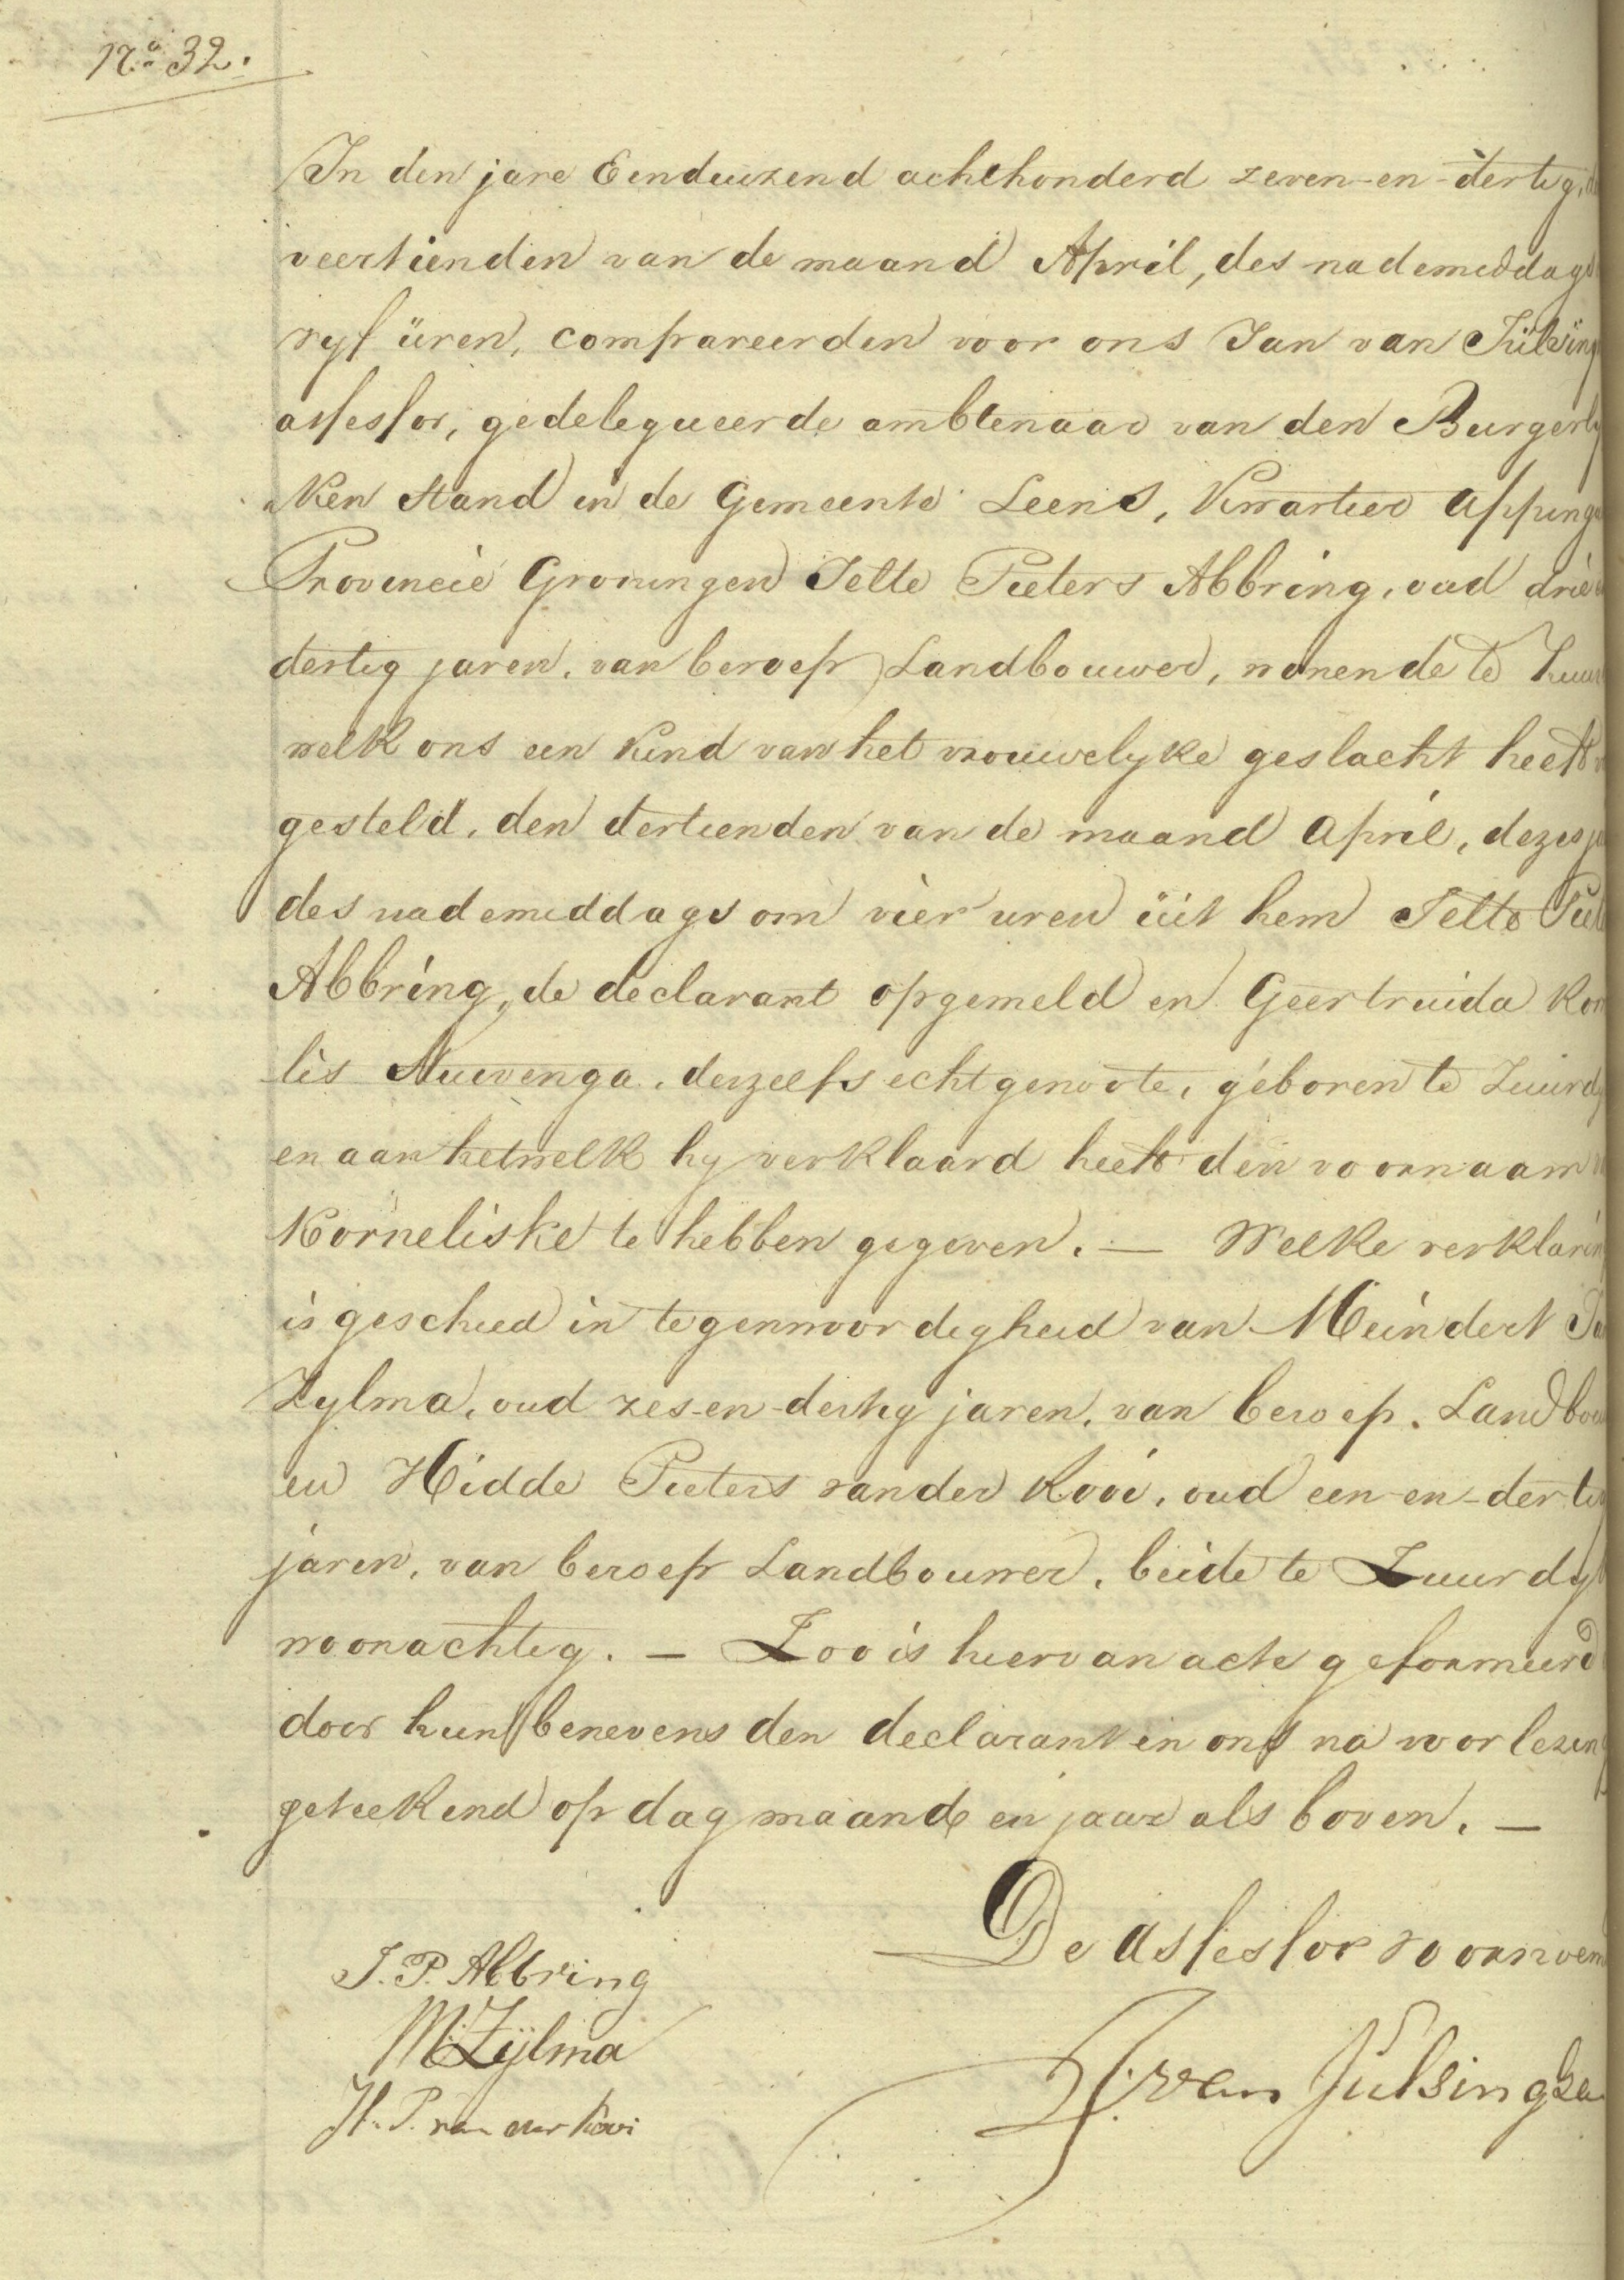 No. 32.
In den jare Eenduizend achthonderd zeven-en-dertig, de
veertienden van de maand April, des nademiddags
vyf üren, compareerden voor ons Jan van Julsing
assessor, gedelegueerde ambtenaar van den Burgerly
ken Stand in de Gemeente Leens, Kwartier Apping
Provincie Groningen Jelte Pieters Abbring, oud drie
dertig jaren, van beroep Landbouwer, wonende te Zuur
welk ons een Kind van het vrouwelyke geslacht heeft
gesteld, den dertienden van de maand April, dezes ja
des nademiddags om vier uren üit hem Jelte Piet
Abbring, de declarant opgemeld en Geertruida Kor
lis Nuivenga, deszelfs echtgenoote, geboren te Zuurdy
en aan hetwelk hy verklaard heeft den voornaam
Korneliske te hebben gegeven. — Welke verklarin
is geschied in tegenwoordigheid van Meindert
Zylma, oud zes-en-dertig jaren, van beroep. Landbou
en Hidde Pieters van der Kooi, oud een-en-dertig
jaren, van beroep Landbouwer, beide te Zuurdyk
woonachtig. — Zoo is hiervan acte geformeerd
door hun benevens den declarant en ons na voorlezing
geteekend op dag maand en jaar als boven. —
De assessor voornoem
J. P. Abbring
M: Zijlma
H. P. van der Kooi
J. van Julsingha